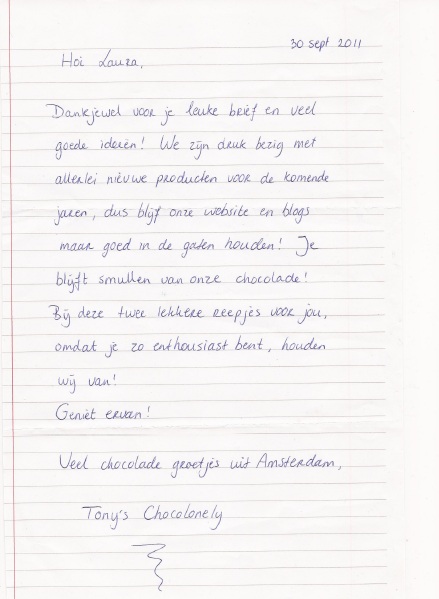 30 sept 2011
Hoi Laura,
Dankjewel voor je leuke brief en veel
goede ideeën! We zijn druk bezig met
allerlei nieuwe producten voor de komende
jaren, dus blijf onze website en blogs
maar goed in de gaten houden! Je
blijft smullen van onze chocolade!
Bij deze twee lekkere reepjes voor jou,
omdat je zo enthousiast bent, houden
wij van!
Geniet ervan!
Veel chocolade groetjes uit Amsterdam,
Tony's Chocolonely